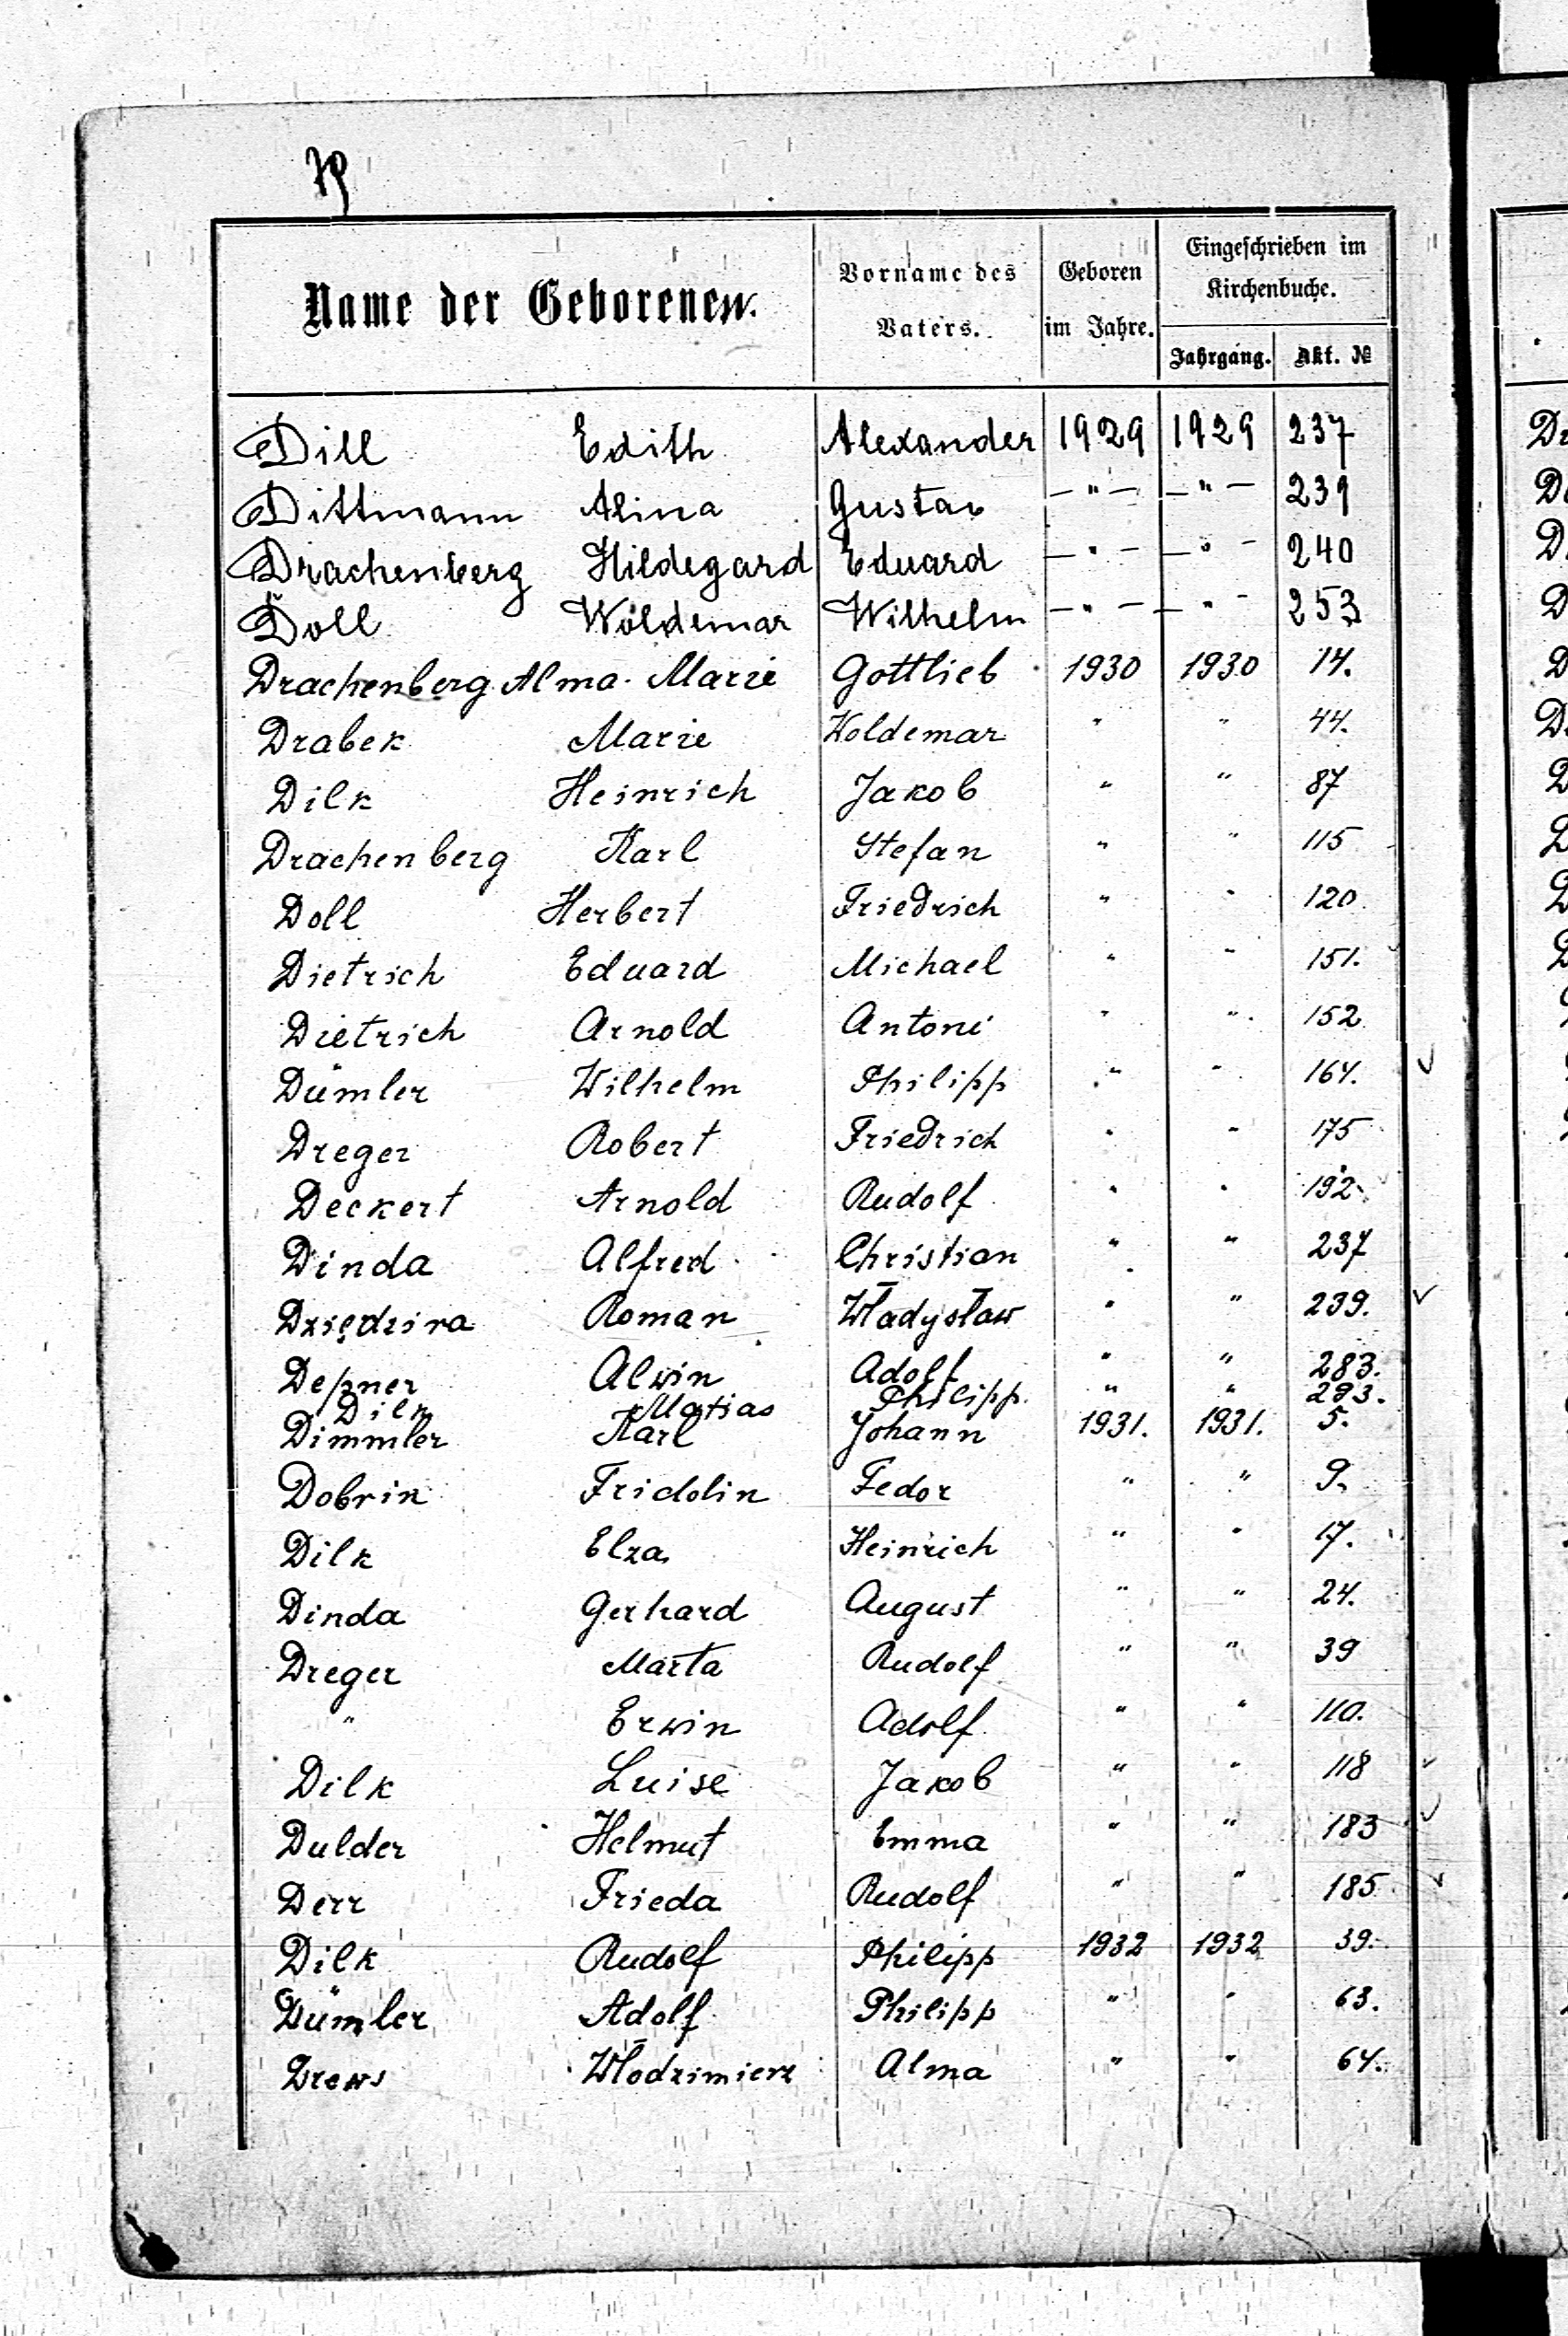 79
Name der Geborenen.
Vorname des Vaters.
Geboren im Jahre.
Eingeschrieben im Kirchenbuche.
Jahrgang. Akt. №
Dill Edith Alexander 1929 1929 237
Dittmann Alina Gustav —"— —"— 239
Drachenberg Hildegard Eduard —"— —"— 240
Doll Woldemar Wilhelm —"— —"— 253
Drachenberg Alma Marie Gottlieb 1930 1930 14.
Drabek Marie Woldemar " " 44.
Dilk Heinrich Jakob " " 87
Drachenberg Karl Stefan " " 115
Doll Herbert Friedrich " " 120
Dietrich Eduard Michael " " 151.
Dietrich Arnold Antoni " " 152
Dümler Wilhelm Philipp " " 164.
Dreger Robert Friedrich " " 175
Deckert Arnold Rudolf " " 192
Dinda Alfred Christian " " 237
Roman Władysław " " 239.
Depner Alwin Adolf " " 283.
Dilk Matias Philipp " " 293.
Dimmler Karl Johann 1931. 1931. 5.
Dobrin Fridolin Fedor " " 9.
Dilk Elza Heinrich " " 17.
Dinda Gerhard August " " 24.
Dreger Marta Rudolf " " 39
" Erwin Adolf " " 110.
Dilk Luise Jakob " " 118
Dulder Helmut Emma " " 183
Derr Frieda Rudolf " " 185
Dilk Rudolf Philipp 1932 1932 39.
Dümler Adolf Philipp " " 63.
Drews Włodzimierz Alma " " 64.